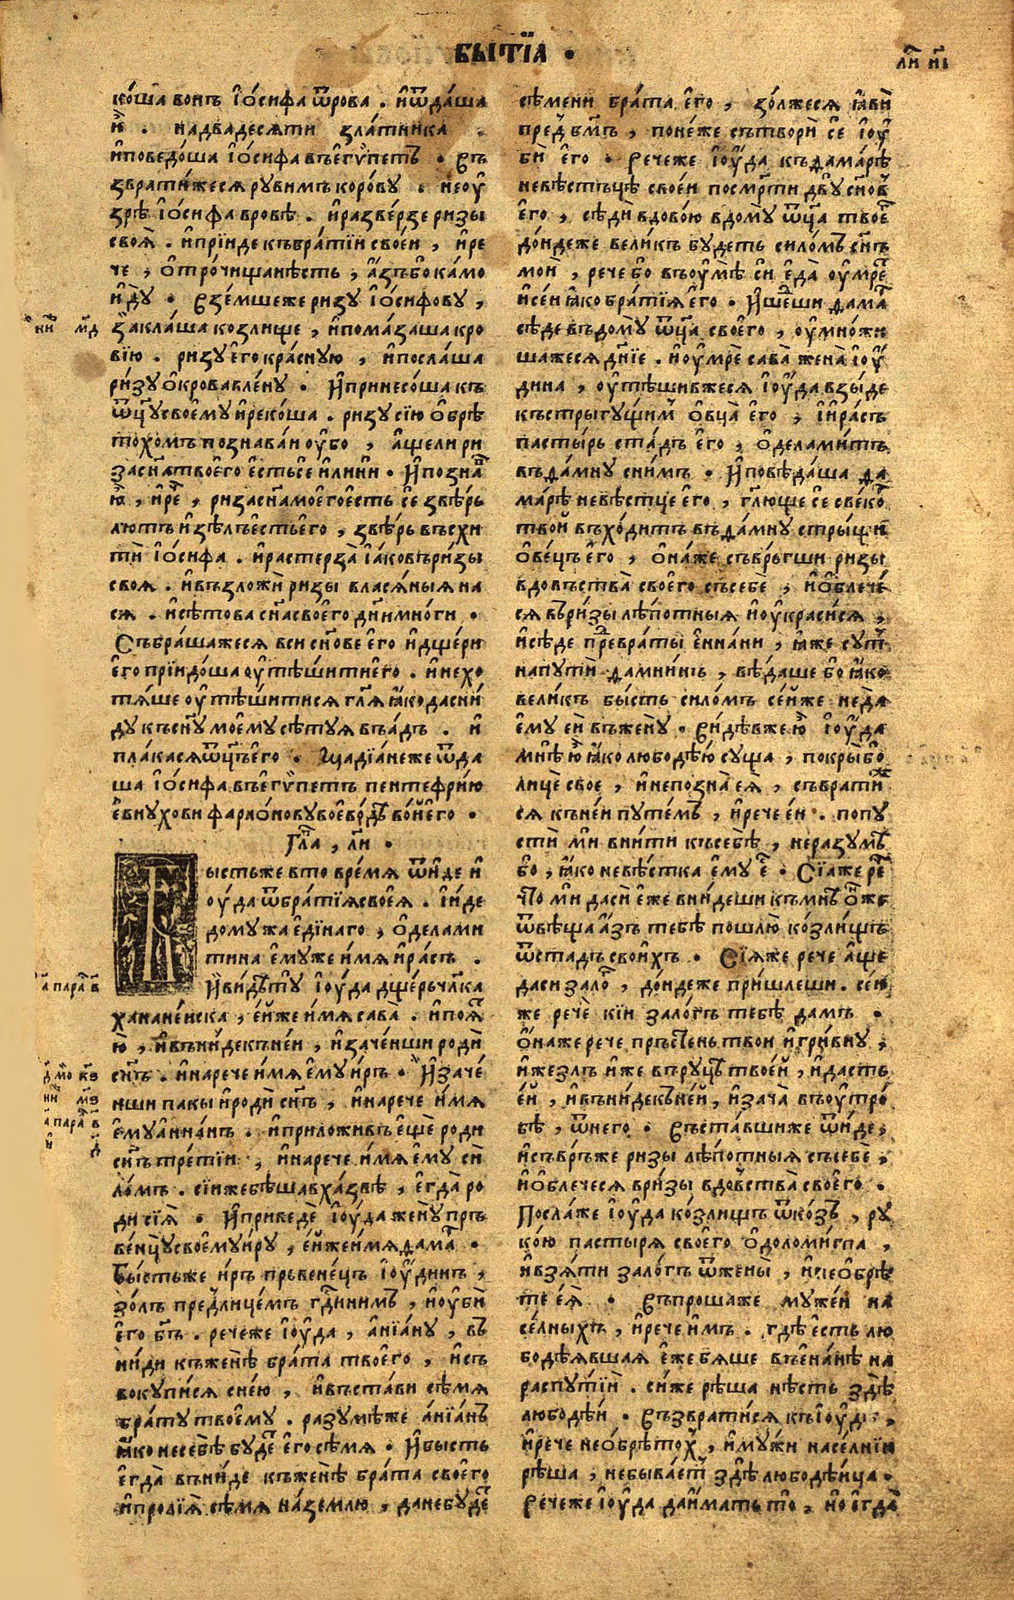 БЫТЇА .
коша вонъ іосифа ѿрова . иѿдаша
и . надвадесяти златника .
иповедоша іосифа въегѵпетъ . въ
звратижеся рувимъ корову . неоу
зрѣ іосифа вровѣ . иразверзе ризы
своя . ипріиде къбратіи своеи , ире
че , отрочищанѣсть , азъбо камо
иду . вземшеже ризу іосифову ,
заклаша козлище , ипомазаша кро
вїю . ризуего красную , ипослаша
ризу окровавлену . ипринесоша къ
ѿцꙋ своему ирекоша . ризу сїю обрѣ
тохомъ познаваи оубо , ащели ри
за сн҃а твоего естьсе илини . ипозна
ю , ире , риза сн҃амоегоесть се звѣрь
лютъ изълъестьего , звѣрь въсхи
ти іосифа . ирастерза іаковъризы
своя . ивъзложи ризы власяныя на
ся . исѣтова сн҃асвоего дн҃имноги .
Събрашажеся вси сн҃ове его идщери
его пріидоша оутѣшитиего . инехо
тяше оутѣшитися гл҃я яко дасни
ду къ сн҃у моему сѣтуя въадъ . и
плакасяѿц҃ъего . мадіанеже ѿда
ша іосифа въегѵпетъ пентефрію
евнухови фараоновувоеводѣ воиего .
Гла , ли .
ыстьже вто время ѿиде и
оуда ѿбратїя своея . іиде
домужа единаго , оделами
тина емуже имя ирасъ .
ивидѣту іоуда дщерьчлка
хананеиска , еиже имя сава . ипоя
ю , ивънидекънеи , изаченши роди
сн҃ъ . инарече имя ему иръ . изаче
нши пакы ироди сн҃ъ , инарече имя
емуаннанъ . иприложивъ еще роди
сн҃ъ третіи , инарече имя ему си
ломъ . сіижебѣшавхазвѣ , егда ро
ди сїя . иприведе іоуда жену пръ
венцу своему иру , еиже имя дама .
Бысть же иръ прьвенецъ іоудинъ ,
золъ предлицемъ гд҃нимъ , иоуби
его бг҃ъ . речеже іоуда , аніану , въ
ниди къженѣ брата твоего , исъ
вокупися снею , ивъстави сѣмя
брату твоему . разумѣже аніанъ
яко несебѣ буде его сѣмя . ибысть
егда въниде къженѣ брата своего
ипролїя сѣмя наземлю , данебуде
сѣмени брата его , золжеся яви
пред бг҃мъ , понеже сътвори се іоу
би его . речеже іоуда къдамарѣ
невѣстьце своеи посмрти двусн҃ов
его , сѣди вдовою вдому ѿц҃а твое
дондеже великъ будеть силомъ сн҃ъ
мои , рече бо въоумѣ си еда оумре
исеи яко братїя его . ишеши дама
сѣде въдому ѿц҃а своего , оумножи
шажеся дн҃їе . иоумре сава жена іоу
дина , оутѣшивжеся іоуда взыде
къстрыгущим овца его , іирасъ
пастырь стадъ его , оделамитъ
въдамну снимъ . иповѣдаша да
марѣ невѣстце его , гл҃юще се свеко
твой въходитъ въдамну стрыщи
овецъ его , онаже съврьгши ризы
вдовъства своего съсебе , иоблече
ся въризы лѣпотныя иоукрасися ,
исѣде превраты еннани , яже сут
напути дамниніь , вѣдаше бо яко
великъ бысть силомъ сеиже неда
ему еи въжену . видѣвжею іоуда
мнѣ ю яко любодѣю суща , покрыбо
лице свое , инепозна ея , съврати
ся кънеи путемъ , ирече еи . попу
сти ми внити късебѣ , неразумѣ
бо , яко невѣстка ему е . Сїаже ре
что ми даси еже внидеши къмнѣ онже
ѿвѣща азъ тебѣ пошлю козлищъ
ѿстадъ своихъ . Сіяже рече аще
даси зало , дондеже пришлеши . сеи
же рече кіи залогъ тебѣ дамъ .
онаже рече прьстень твои игривну ,
ижезлъ иже вруцѣ твоеи , идасть
еи , ивънидекънеи , изача въоутро
бѣ , ѿнего . въставшиже ѿиде ,
исъврьже ризы лѣпотныя съсебе ,
иоблечеся вризы вдовства своего .
Послаже іоуда козлищъ ѿкозъ , ру
кою пастыря своего одоломитпа ,
ивзяти залогъ ѿжены , инеобрѣ
те ея . въпрошаже мужеи на
селныхъ , ирече имъ . гдѣ есть лю
бодѣявшая еже бяше въенанѣ на
распутїи . сиже рѣша нѣсть здѣ
любодѣи . възвратися къіоудѣ ,
ирече необрѣтох , имужи населнїи
рѣша , небывает здѣ любодѣица .
речеже іоуда даимать то , но егда